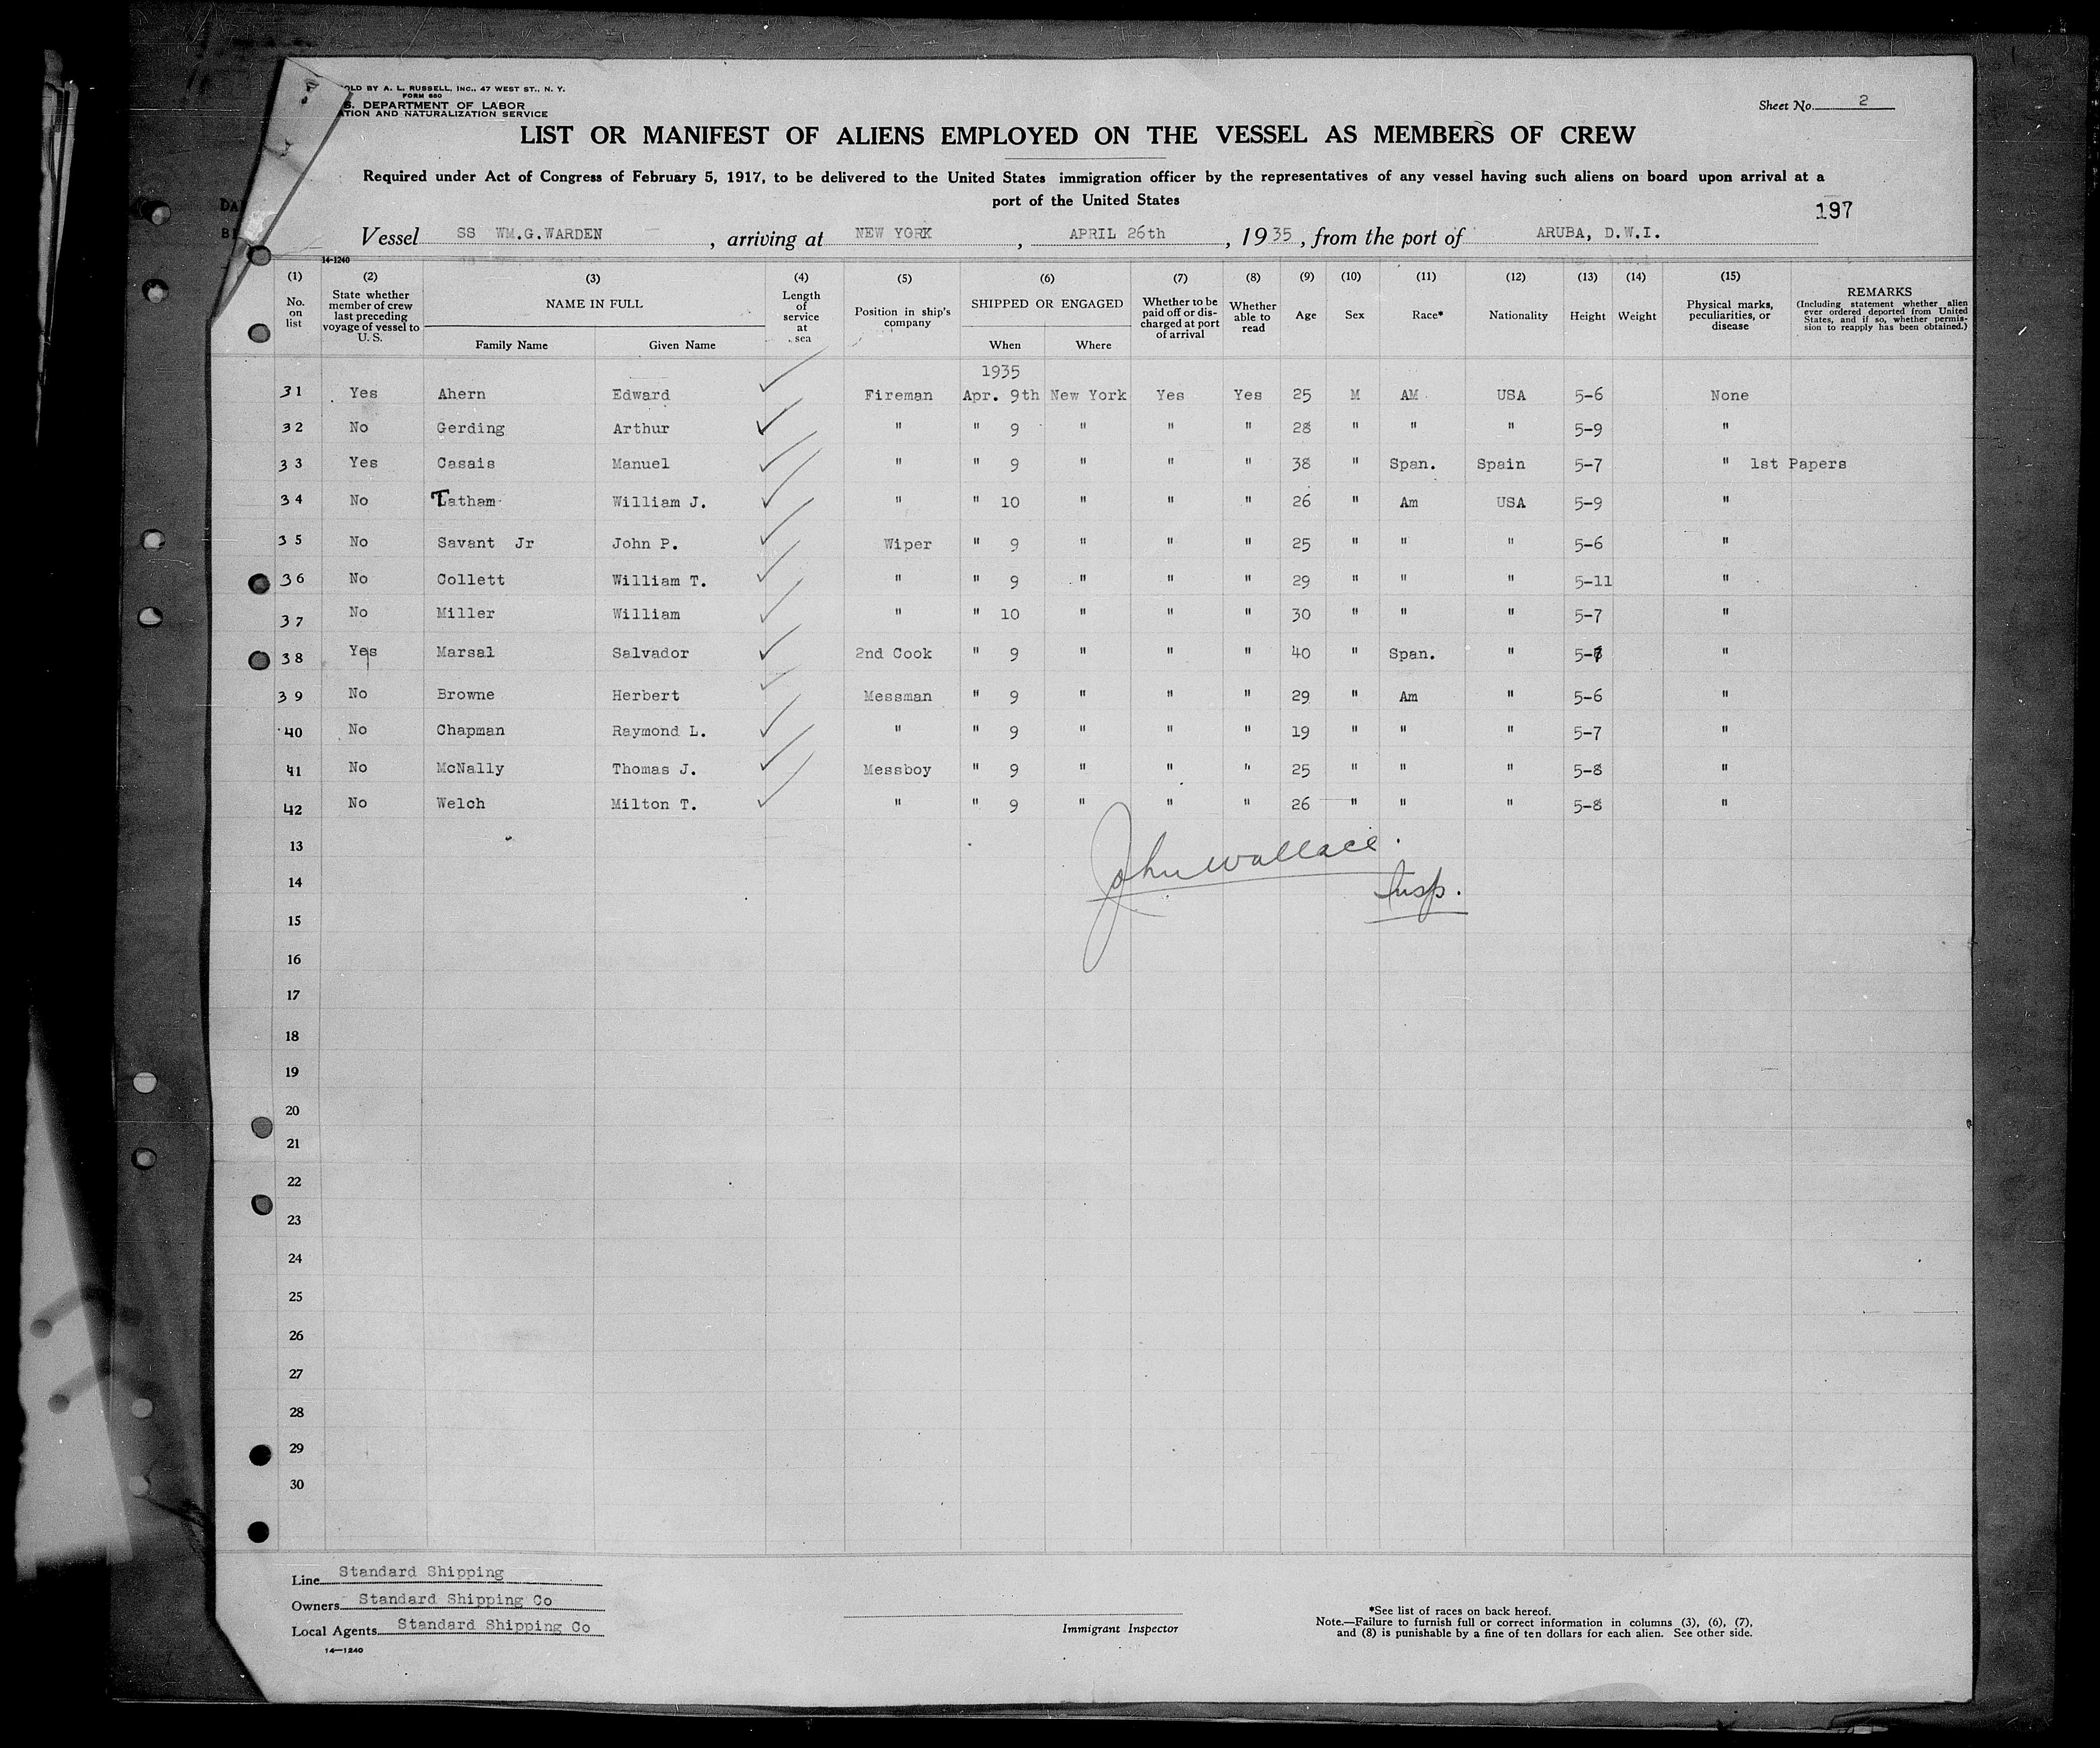 OLD BY A. L. RUSSELL, INC., 47 WEST ST., N. Y.
FORM 680
S. DEPARTMENT OF LABOR
ATION AND NATURALIZATION SERVICE
Sheet No. 2
LIST OR MANIFEST OF ALIENS EMPLOYED ON THE VESSEL AS MEMBERS OF CREW
Required under Act of Congress of February 5, 1917, to be delivered to the United States immigration officer by the representatives of any vessel having such aliens on board upon arrival at a
port of the United States
197
Vessel SS WM.G.WARDEN, arriving at NEW YORK, APRIL 26th, 1935, from the port of ARUBA, D.W.I.
14-1240
(1) No. on list (2) State whether member of crew last preceding voyage of vessel to U. S. (3) NAME IN FULL Family Name Given Name (4) Length of service at sea (5) Position in ship's company (6) SHIPPED OR ENGAGED When Where (7) Whether to be paid off or discharged at port of arrival (8) Whether able to read (9) Age (10) Sex (11) Race* (12) Nationality (13) Height (14) Weight (15) Physical marks, peculiarities, or disease REMARKS (Including statement whether alien ever ordered deported from United States, and if so, whether permission to reapply has been obtained.)
1935
31 Yes Ahern Edward Fireman Apr. 9th New York Yes Yes 25 M AM USA 5-6 None
32 No Gerding Arthur " " 9 " " " 28 " " " 5-9 "
33 Yes Casais Manuel " " 9 " " " 38 " Span. Spain 5-7 " 1st Papers
34 No Tatham William J. " " 10 " " " 26 " Am USA 5-9 "
35 No Savant Jr John P. Wiper " 9 " " " 25 " " " 5-6 "
36 No Collett William T. " " 9 " " " 29 " " " 5-11 "
37 No Miller William " " 10 " " " 30 " " " 5-7 "
38 Yes Marsal Salvador 2nd Cook " 9 " " " 40 " Span. " "
39 No Browne Herbert Messman " 9 " " " 29 " Am " 5-6 "
40 No Chapman Raymond L. " " 9 " " " 19 " " " 5-7 "
41 No McNally Thomas J. Messboy " 9 " " " 25 " " " 5-8 "
42 No Welch Milton T. " " 9 " " " 26 " " " 5-8 "
13
John Wallace.
14
Insp.
15
16
17
18
19
20
21
22
23
24
25
26
27
28
29
30
Line Standard Shipping
Owners Standard Shipping Co
Local Agents Standard Shipping Co
14-1240
Immigrant Inspector
*See list of races on back hereof.
Note.—Failure to furnish full or correct information in columns (3), (6), (7),
and (8) is punishable by a fine of ten dollars for each alien. See other side.